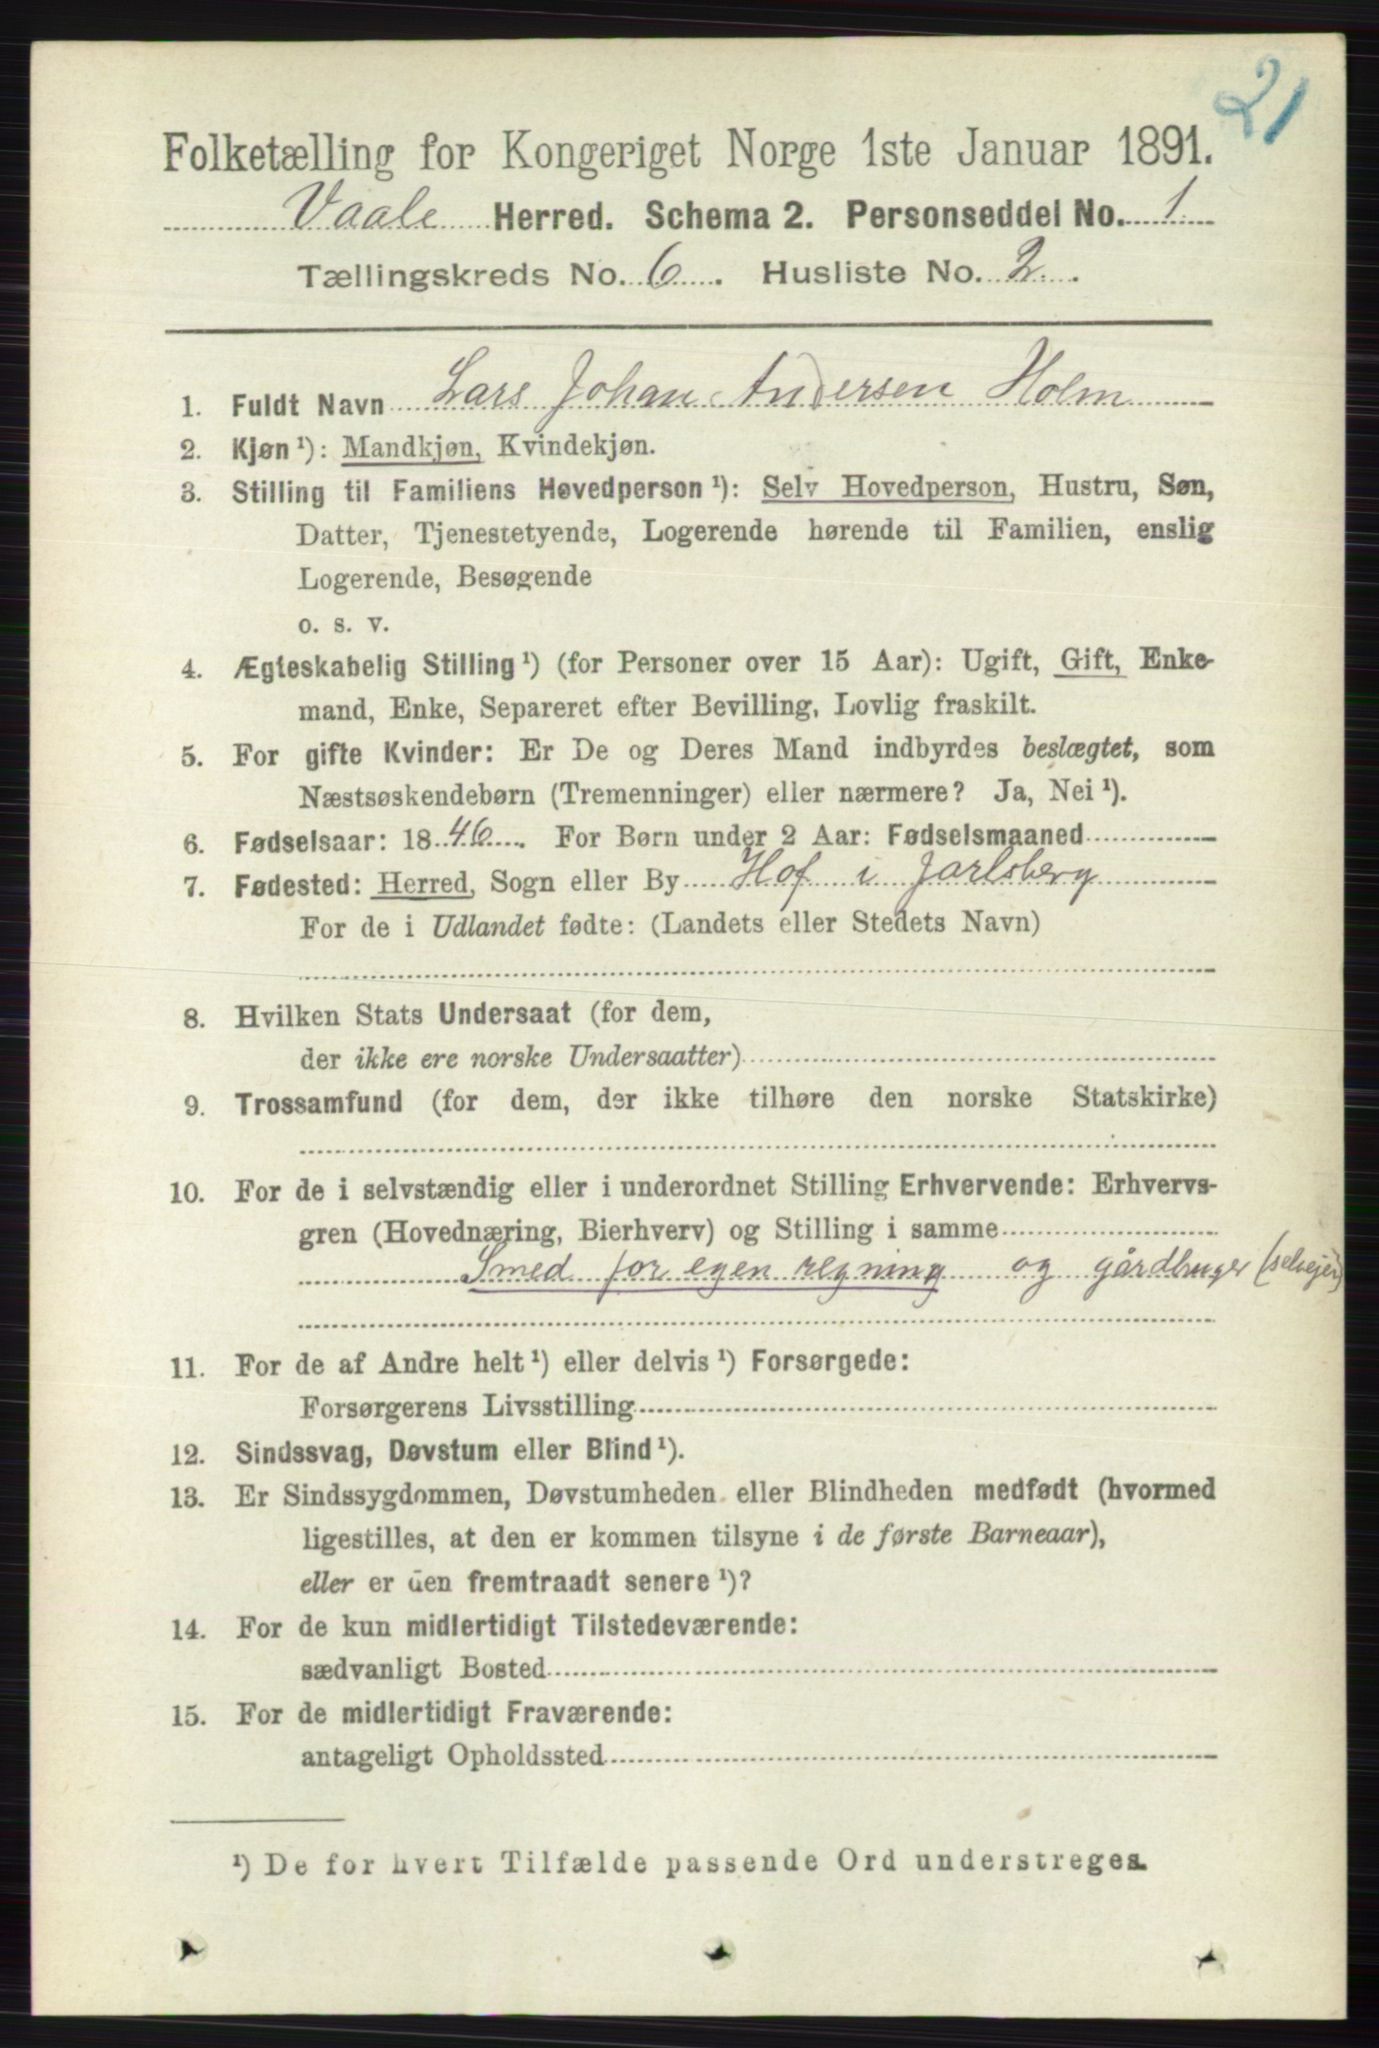 21
Folketælling for Kongeriget Norge 1ste Januar 1891.
Vaale Herred. Schema 2. Personseddel No. 1
Tællingskreds No. 6. Husliste No. 2.
1. Fuldt Navn Lars Johan Andersen Holm
2. Kjøn ¹): Mandkjøn, Kvindekjøn.
3. Stilling til Familiens Hovedperson ¹): Selv Hovedperson, Hustru, Søn,
Datter, Tjenestetyende, Logerende hørende til Familien, enslig
Logerende, Besøgende
o. s. v.
4. Ægteskabelig Stilling ¹) (for Personer over 15 Aar): Ugift, Gift, Enke-
mand, Enke, Separeret efter Bevilling, Lovlig fraskilt.
5. For gifte Kvinder: Er De og Deres Mand indbyrdes beslægtet, som
Næstsøskendebørn (Tremenninger) eller nærmere? Ja, Nei ¹).
6. Fødselsaar: 1846. For Børn under 2 Aar: Fødselsmaaned
7. Fødested: Herred, Sogn eller By Hof i Jarlsberg
For de i Udlandet fødte: (Landets eller Stedets Navn)
8. Hvilken Stats Undersaat (for dem,
der ikke ere norske Undersaatter)
9. Trossamfund (for dem, der ikke tilhøre den norske Statskirke)
10. For de i selvstændig eller i underordnet Stilling Erhvervende: Erhvervs-
gren (Hovednæring, Bierhverv) og Stilling i samme
Smed for egen regning og gårdbruger (selvejer)
11. For de af Andre helt ¹) eller delvis ¹) Forsørgede:
Forsørgerens Livsstilling
12. Sindssvag, Døvstum eller Blind ¹).
13. Er Sindssygdommen, Døvstumheden eller Blindheden medfødt (hvormed
ligestilles, at den er kommen tilsyne i de første Barneaar),
eller er den fremtraadt senere ¹)?
14. For de kun midlertidigt Tilstedeværende:
sædvanligt Bosted
15. For de midlertidigt Fraværende:
antageligt Opholdssted
¹) De for hvert Tilfælde passende Ord understreges.